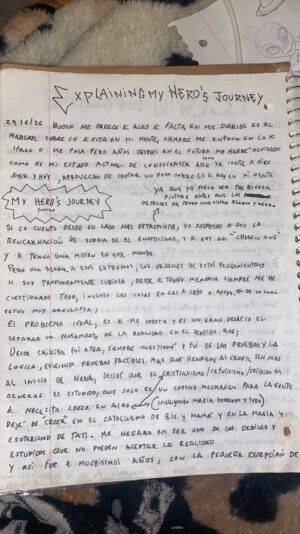 EXPLAINING MY HERO'S JOURNEY
BUENO ME PARECE K ALGO K FALTA EN MIS DIARIOS ES EL
HABLAR SOBRE LO K ESTA EN MI MENTE, SIEMPRE ME ENFOCO EN LO K
HAGO O ME PASA PERO AÑOS DESPUES EN EL FUTURO ME HABRE OLVIDADO
COMO ES MI ESTADO ACTUAL DE CONSCIENCIA COMO YA CONTE K HICE
AYER Y HOY, APROVECHO DE CONTAR UN POCO SOBRE LO K HAY EN MI MENTE
YA QUE YO
PINTAR ANTES QUE LOS
DETALLES
MY HERO'S JOURNEY
SI LO CUENTO DESDE SU LADO MAS EXTREMISTA, YO SOSPECHO K SOY LA
REENCARNACION DE SOPHIA DE EL GNOSTICISMO, Y K SOY UN "CHOSEN ONE"
Y K TENGO UNA MISION EN ESTE MUNDO.
PERO LOS ORIGENES DE ESTOS PENSAMIENTOS
K SOY PROFUNDAMENTE CURIOSA, DESDE K TENGO MEMORIA SIEMPRE ME HE
CUESTIONADO TODO, INCLUSO LAS COSAS EN LAS K CREO O APOYO, DE LO CUAL
ESTOY MUY ORGULLOSA.
EL PROBLEMA IGUAL, ES K ME CUESTA Y ES UN GRAN DESAFIO EL
SEPARAR UN PENSAMIENTO DE LA REALIDAD EN EL SENTIDO QUE;
DESDE CHIKITA FUI ATEA, SIEMPRE CUESTIONE Y FUI DE LAS PRUEBAS Y LA
LOGICA, EXIGIENDO PRUEBAS FACTIBLES MAS QUE RENDIRME AL CREER SIN MAS
AL INICIO DE NENA, DECIDI QUE EL CRISTIANISMO/CATOLICISMO/RELIGION EN
DEVERAS ES ESTUPIDO, QUE SOLO ES UN COPING MECHANISM PARA LA GENTE
K NECESITA CREER EN ALGO (INCLUYENDO MAGIA Y TODO)
DEJE DE CREER EN EL CATOLICISMO DE BIS Y MAMA Y EN LA MAGIA Y
ESOTERISMO DE TATI. ME NEGABA EN SER UNO DE LOS DEBILES Y
ESTUPIDOS QUE NO PUEDEN ACEPTAR LA REALIDAD
Y ASI FUE K MUCHISIMOS AÑOS, CON LA PEQUEÑA EXCEPCION DE